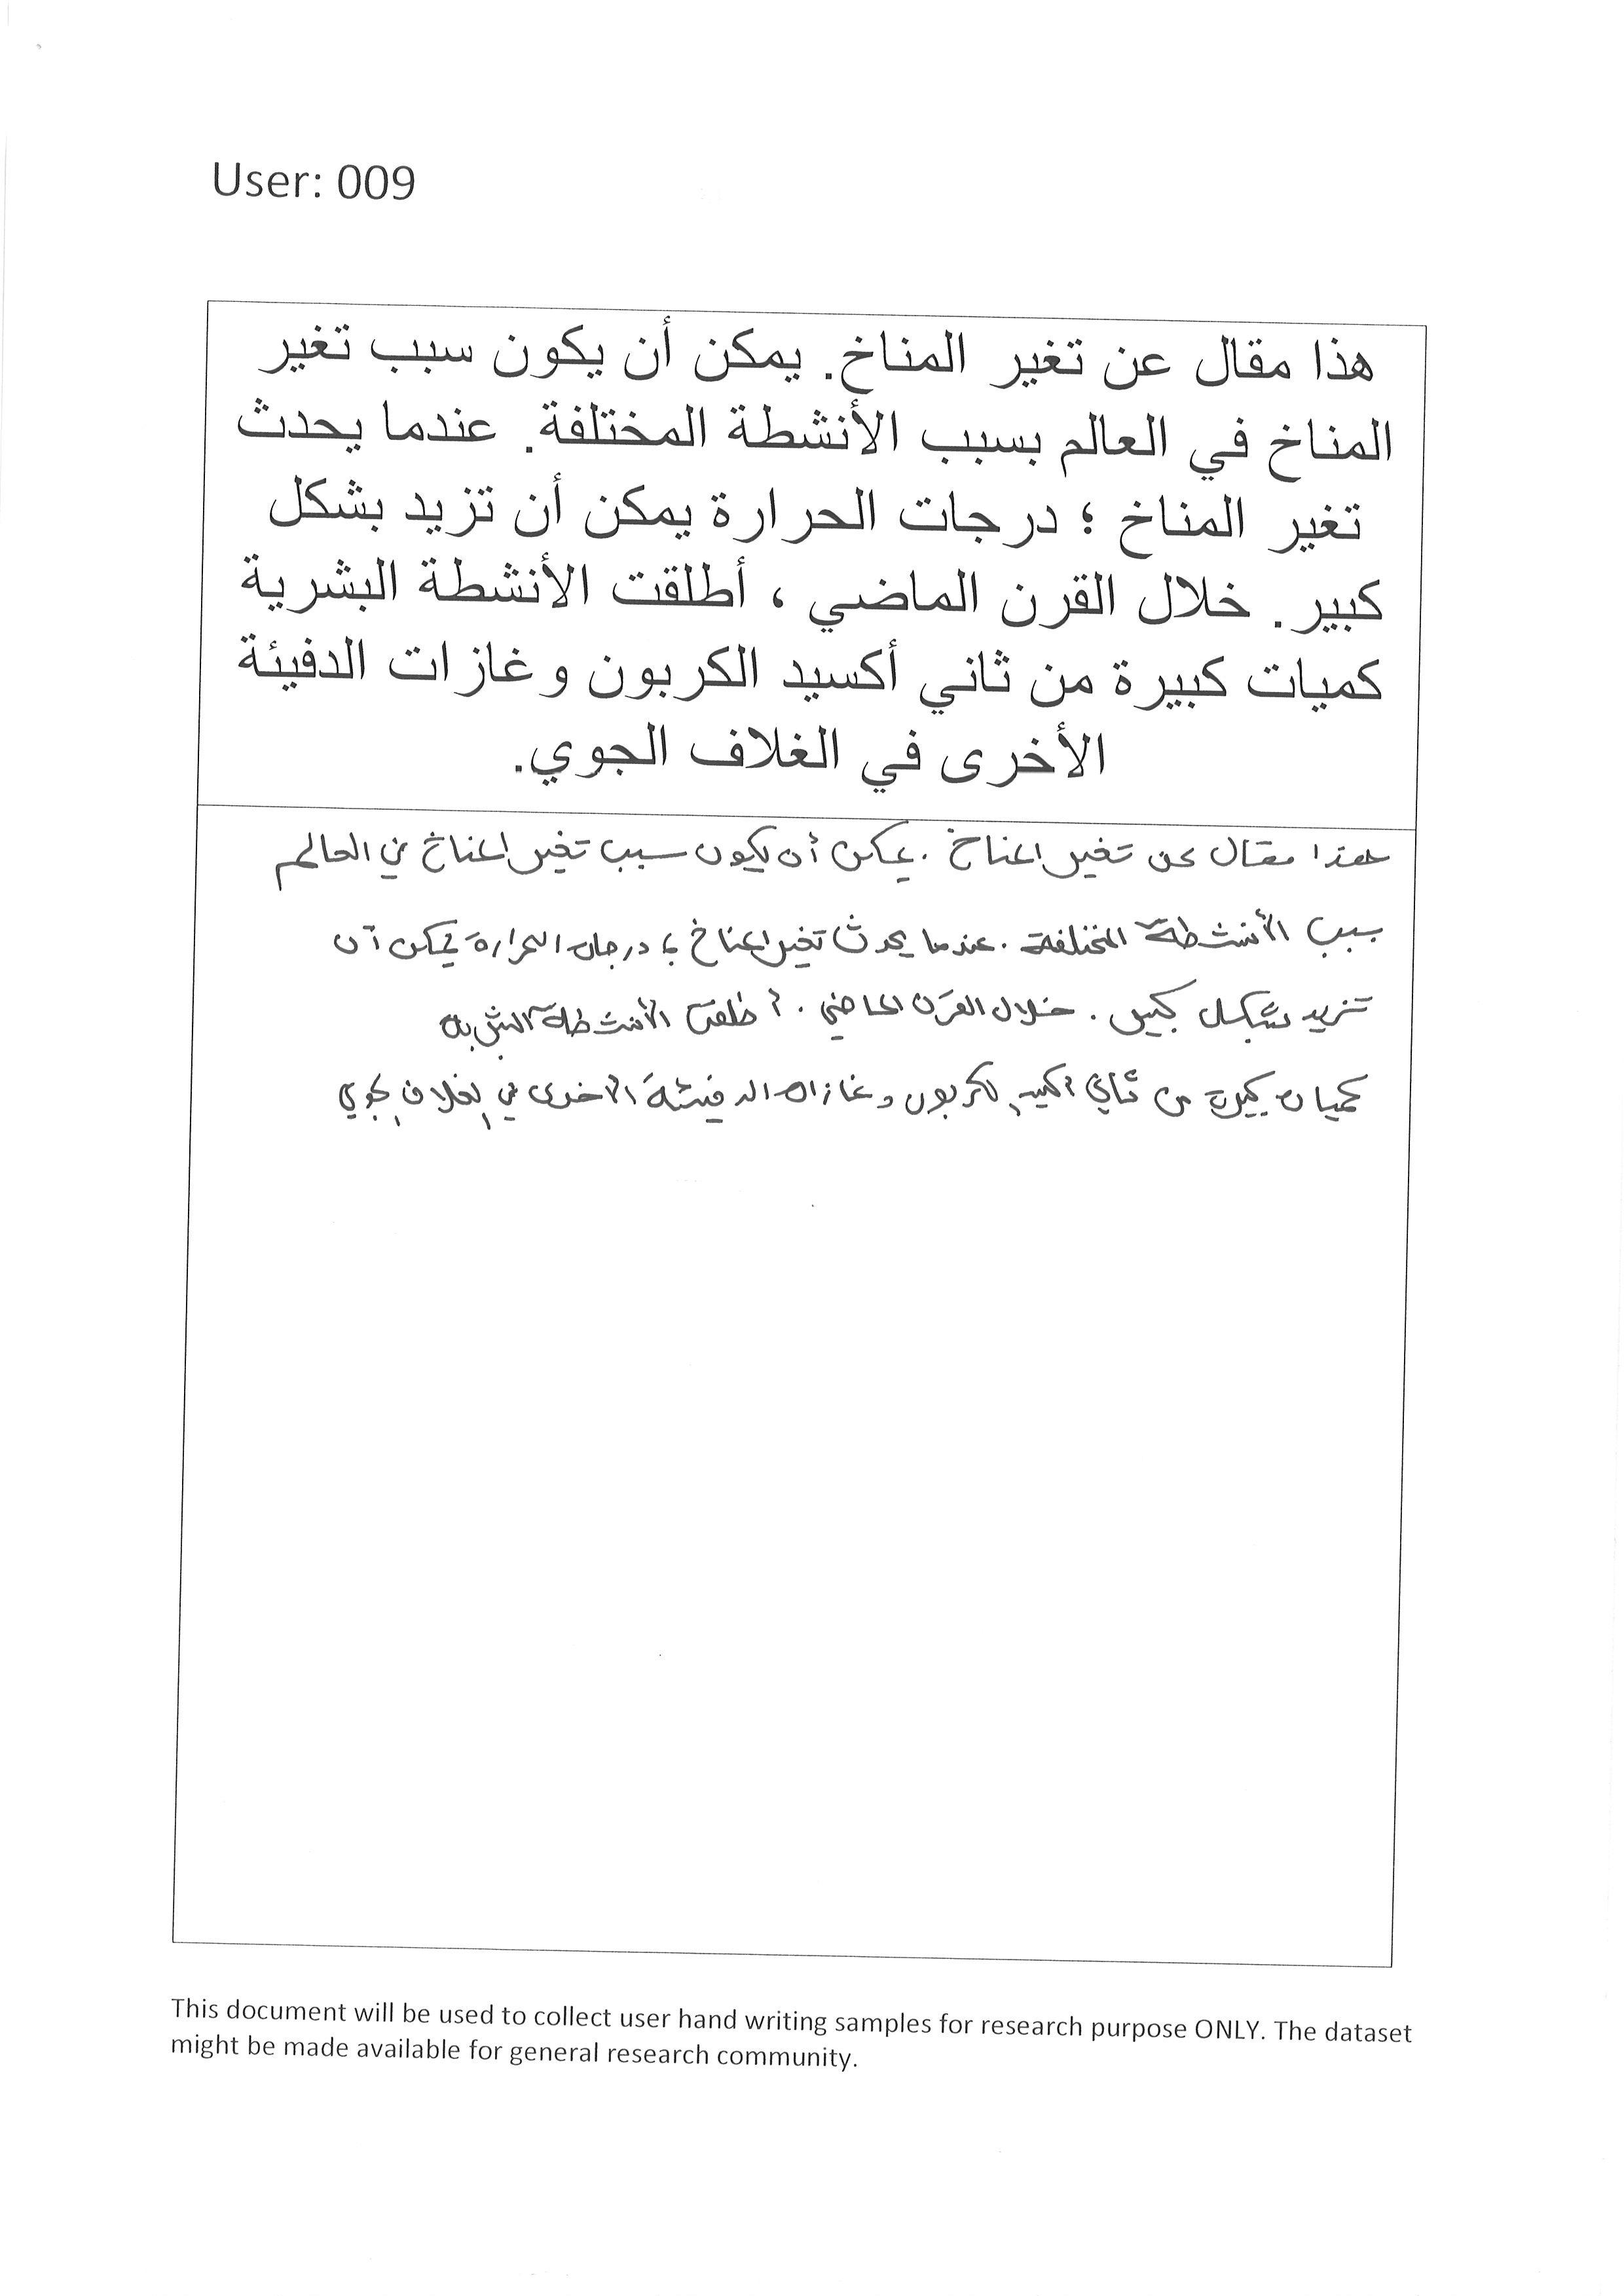 User: 009
هذا مقال عن تغير المناخ. يمكن أن يكون سبب تغير
المناخ في العالم بسبب الأنشطة المختلفة. عندما يحدث
تغير المناخ ؛ درجات الحرارة يمكن أن تزيد بشكل
كبير. خلال القرن الماضي ، أطلقت الأنشطة البشرية
كميات كبيرة من ثاني أكسيد الكربون وغازات الدفيئة
الأخرى في الغلاف الجوي.
هذا مقال عن تغير المناخ . يمكن أن يكون سبب تغير المناخ في العالم
بسبب الأنشطة المختلفة . عندما يحدث تغير المناخ ؛ درجات الحرارة يمكن أن
تزيد بشكل كبير . خلال القرن الماضي . أطلقت الأنشطة البشرية
كميات كبيرة من ثاني أكسيد الكربون وغازات الدفيئة الأخرى في الغلاف الجوي
This document will be used to collect user hand writing samples for research purpose ONLY. The dataset
might be made available for general research community.